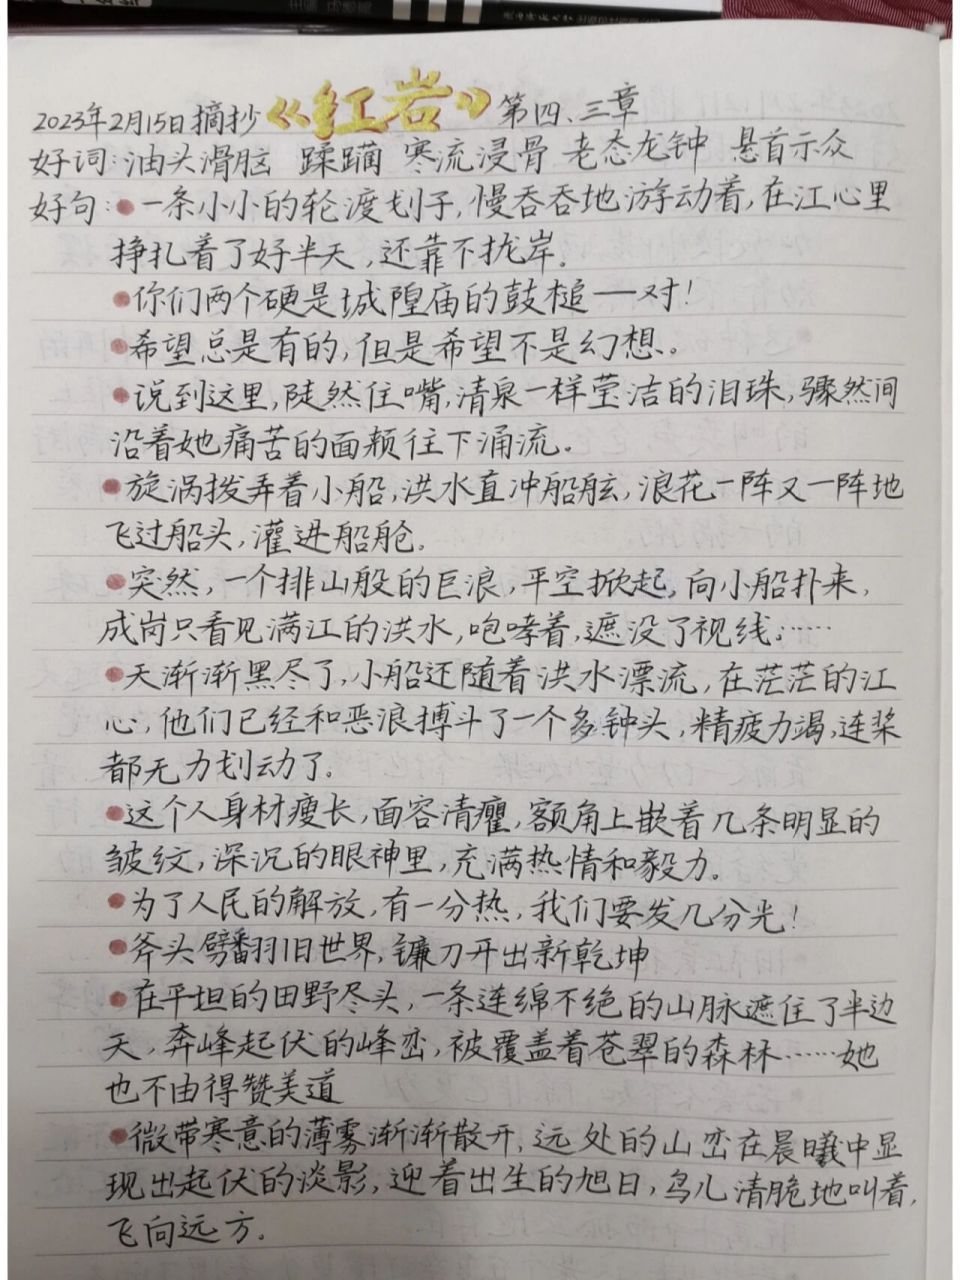 2023年2月15日摘抄《红岩》第四、三章
好词:油头滑脑 蹂躏 寒流浸骨 老态龙钟 悬首示众
好句:●一条小小的轮渡划子,慢吞吞地游动着,在江心里
挣扎着了好半天,还靠不拢岸。
●你们两个硬是城隍庙的鼓槌——对!
●希望总是有的,但是希望不是幻想。
●说到这里,陡然住嘴,清泉一样莹洁的泪珠,骤然间
沿着她痛苦的面颊往下涌流。
●旋涡拨弄着小船,洪水直冲船舷,浪花一阵又一阵地
飞过船头,灌进船舱。
●突然,一个排山般的巨浪,平空掀起,向小船扑来,
成岗只看见满江的洪水,咆哮着,遮没了视线。……
●天渐渐黑尽了,小船还随着洪水漂流,在茫茫的江
心,他们已经和恶浪搏斗了一个多钟头,精疲力竭,连桨
都无力划动了。
●这个人身材瘦长,面容清癯,额角上嵌着几条明显的
皱纹,深沉的眼神里,充满热情和毅力。
●为了人民的解放,有一分热,我们要发几分光!
●斧头劈翻旧世界,镰刀开出新乾坤
●在平坦的田野尽头,一条连绵不绝的山脉遮住了半边
天,奔峰起伏的峰峦,被覆盖着苍翠的森林……她
也不由得赞美道
●微带寒意的薄雾渐渐散开,远处的山峦在晨曦中显
现出起伏的淡影,迎着出生的旭日,鸟儿清脆地叫着,
飞向远方。